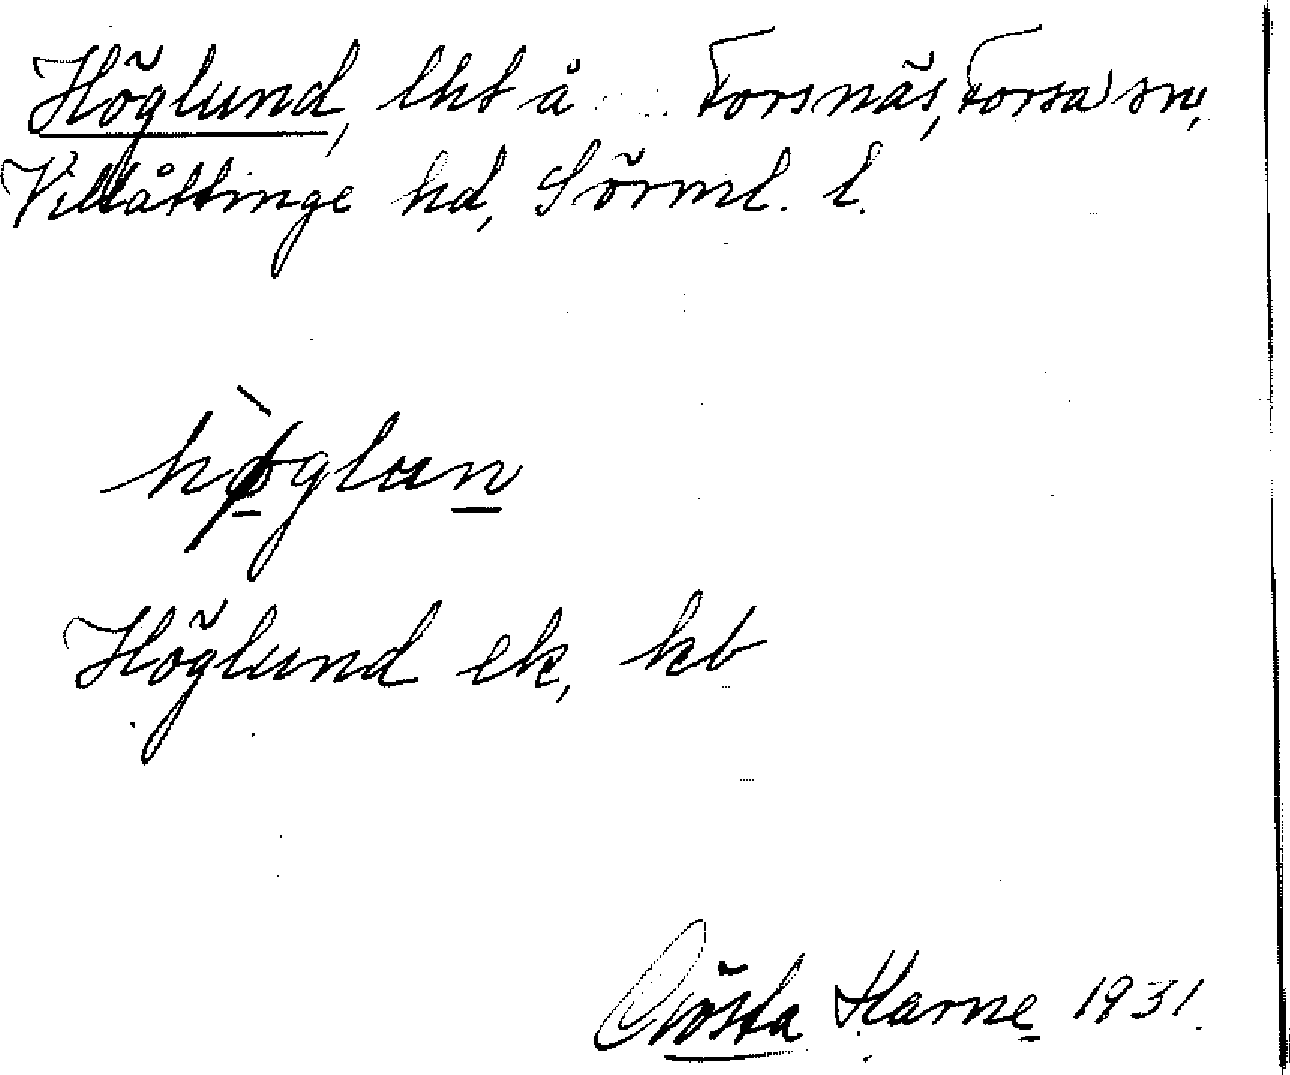 Höglund, lht å Forsnäs, Forsa sn,
Villåttinge hd, Sörml. l.
hø̀glun
Höglund ek, kb
Gösta Harne 1931.